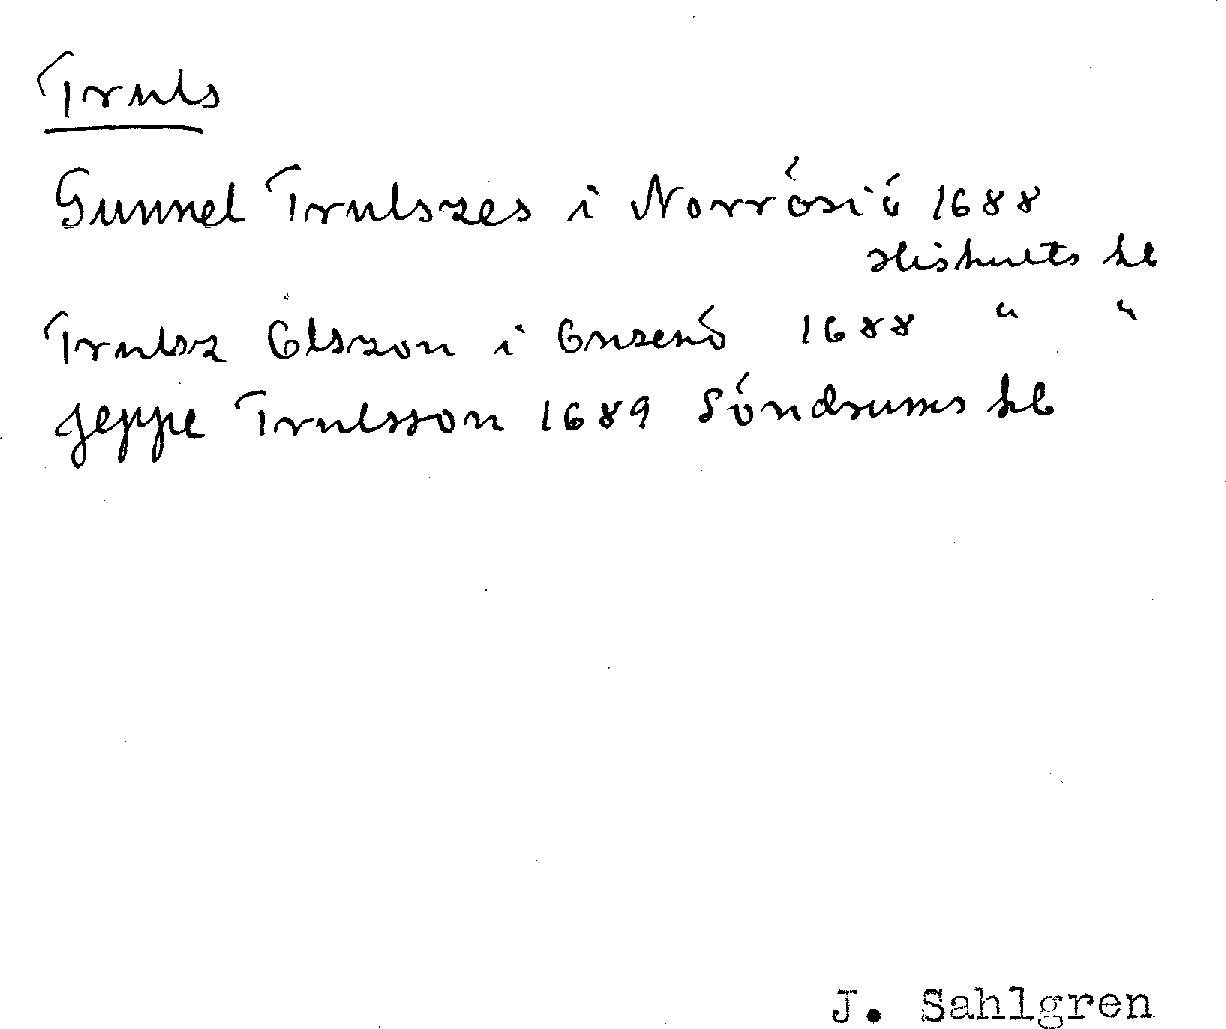 Truls
Gunnel Trulszes i Norrósió 1688
Slishults kb
Trulsz Olszon i 1688 " "
Jeppe Trulsson 1689 Söndrums kb
J. Sahlgren